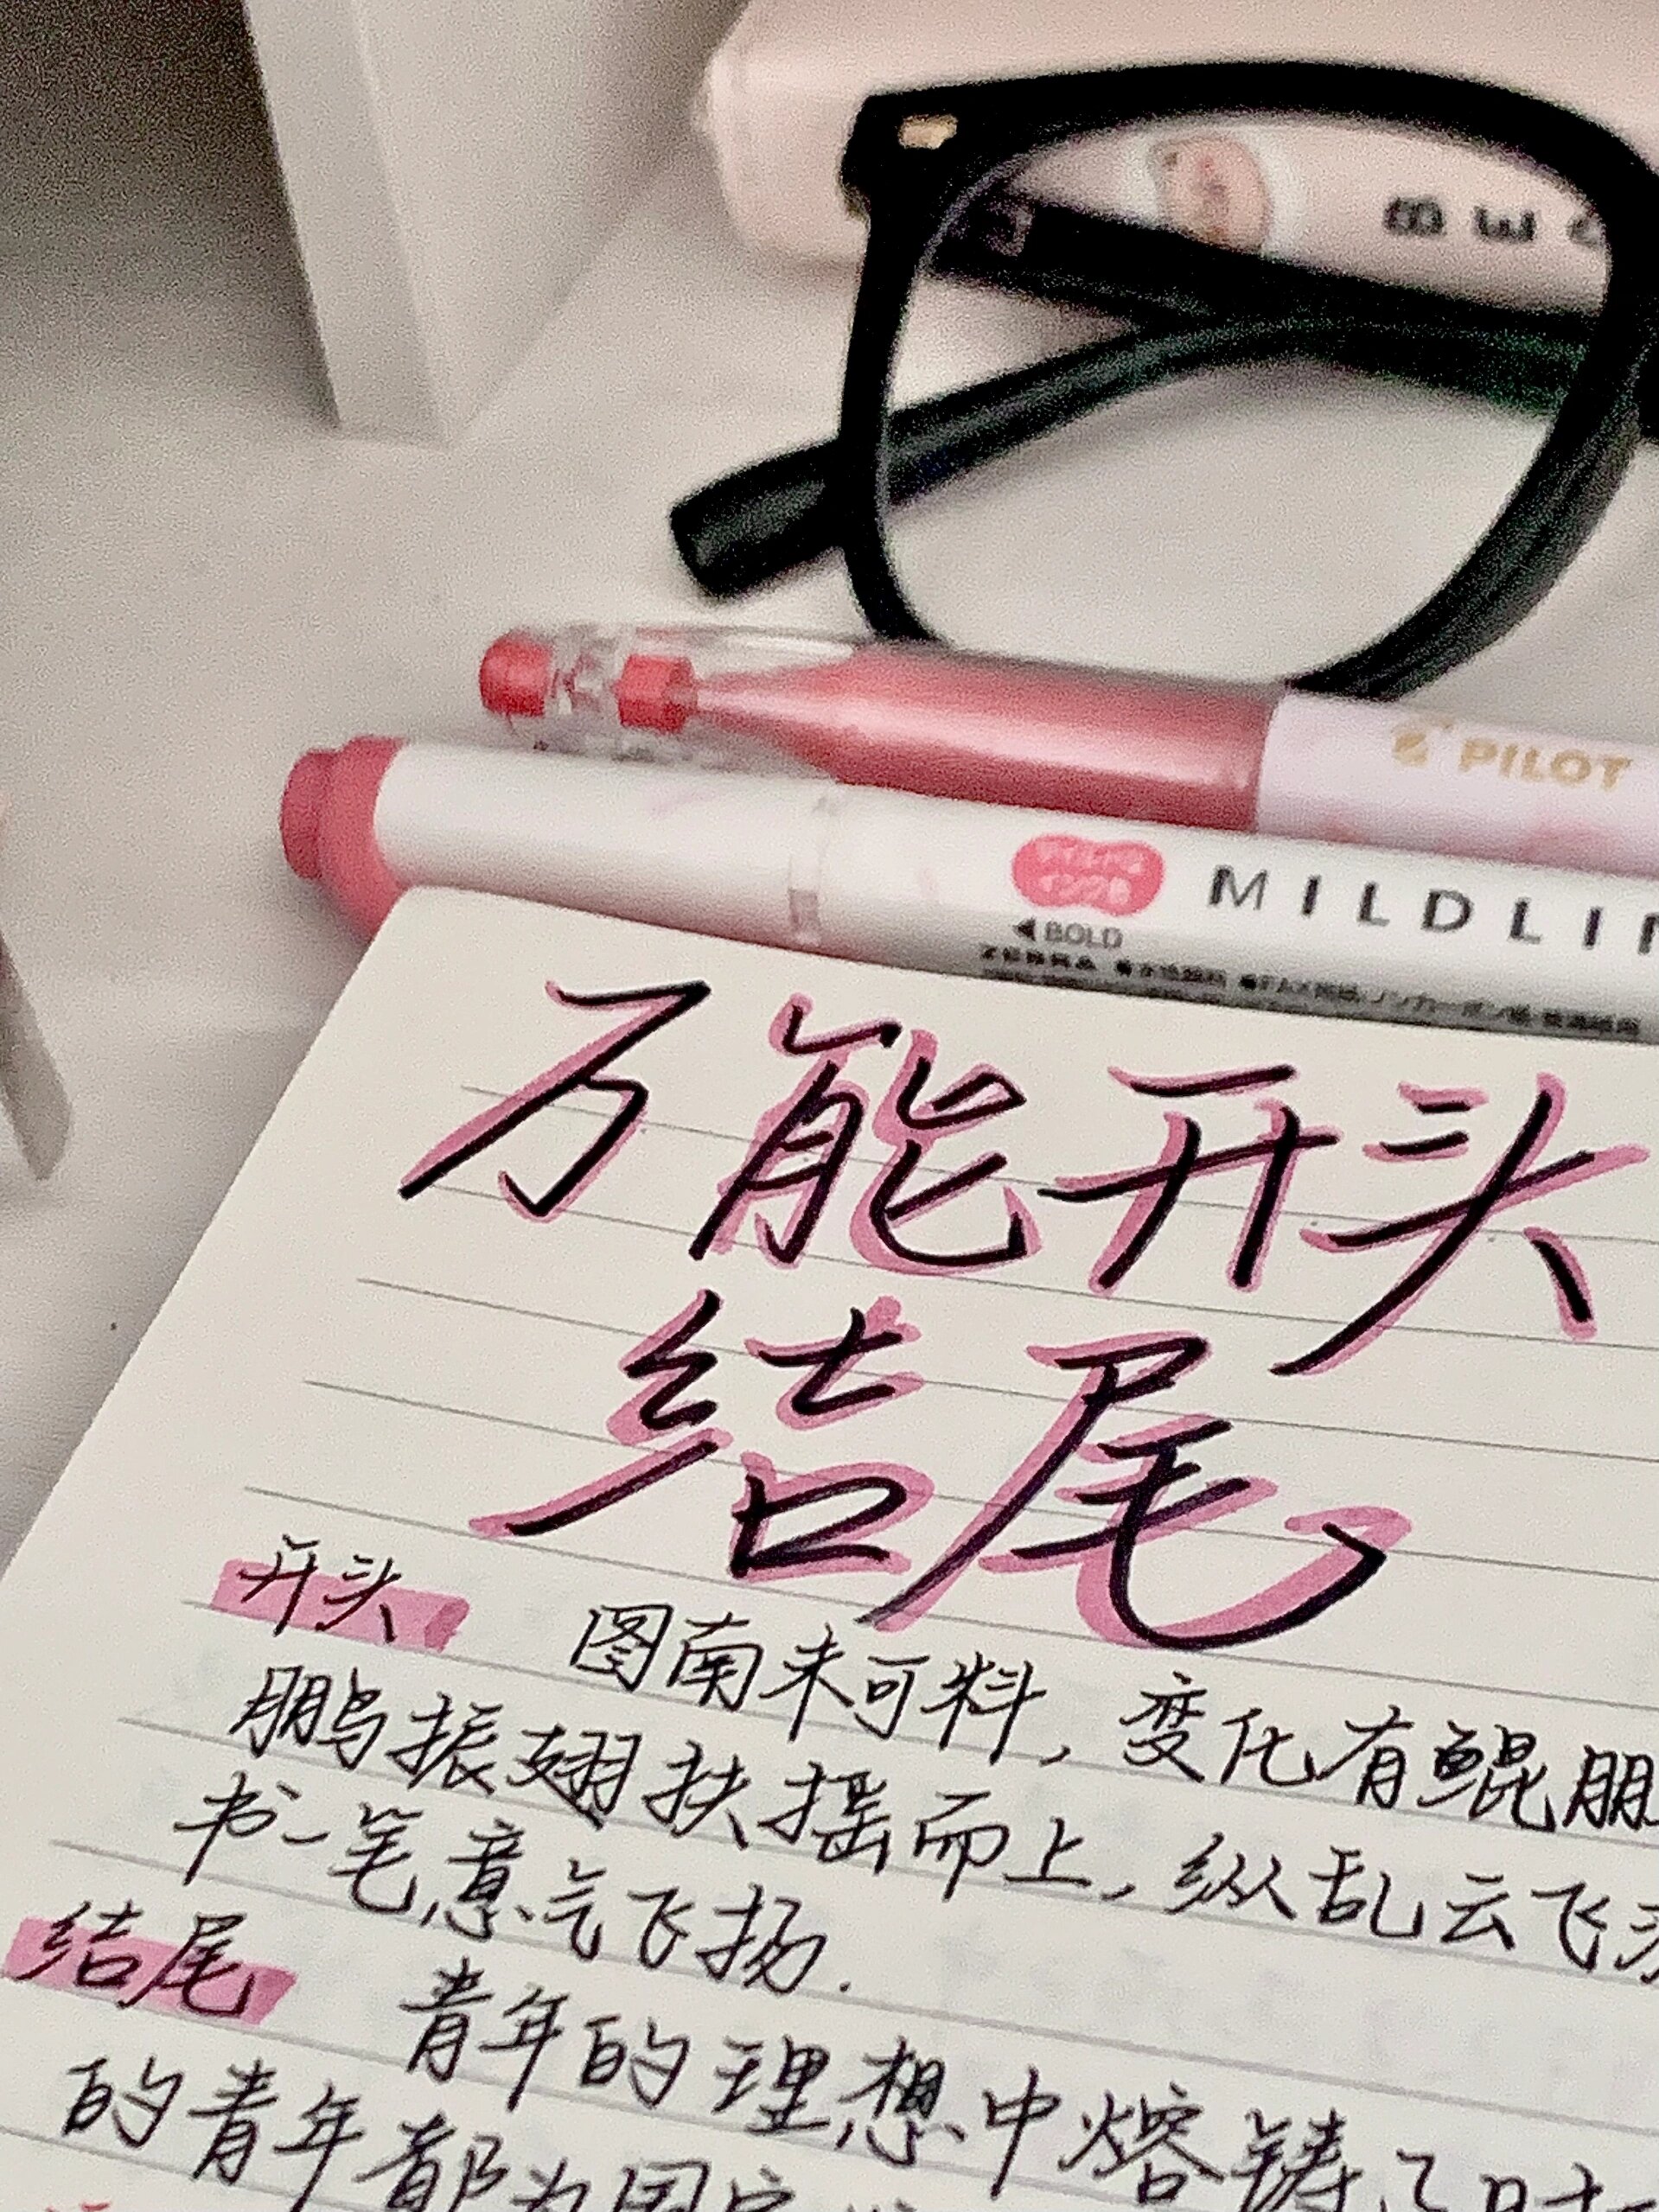 BE
PILOT
MILDLI
BOLD
ZEBRA
万能开头
结尾
开头 图南未可料，变化有鲲鹏
鹏振翅扶摇而上，纵乱云飞
书一笔意气飞扬.
结尾 青年的理想中熔铸了时
的青年都为国家